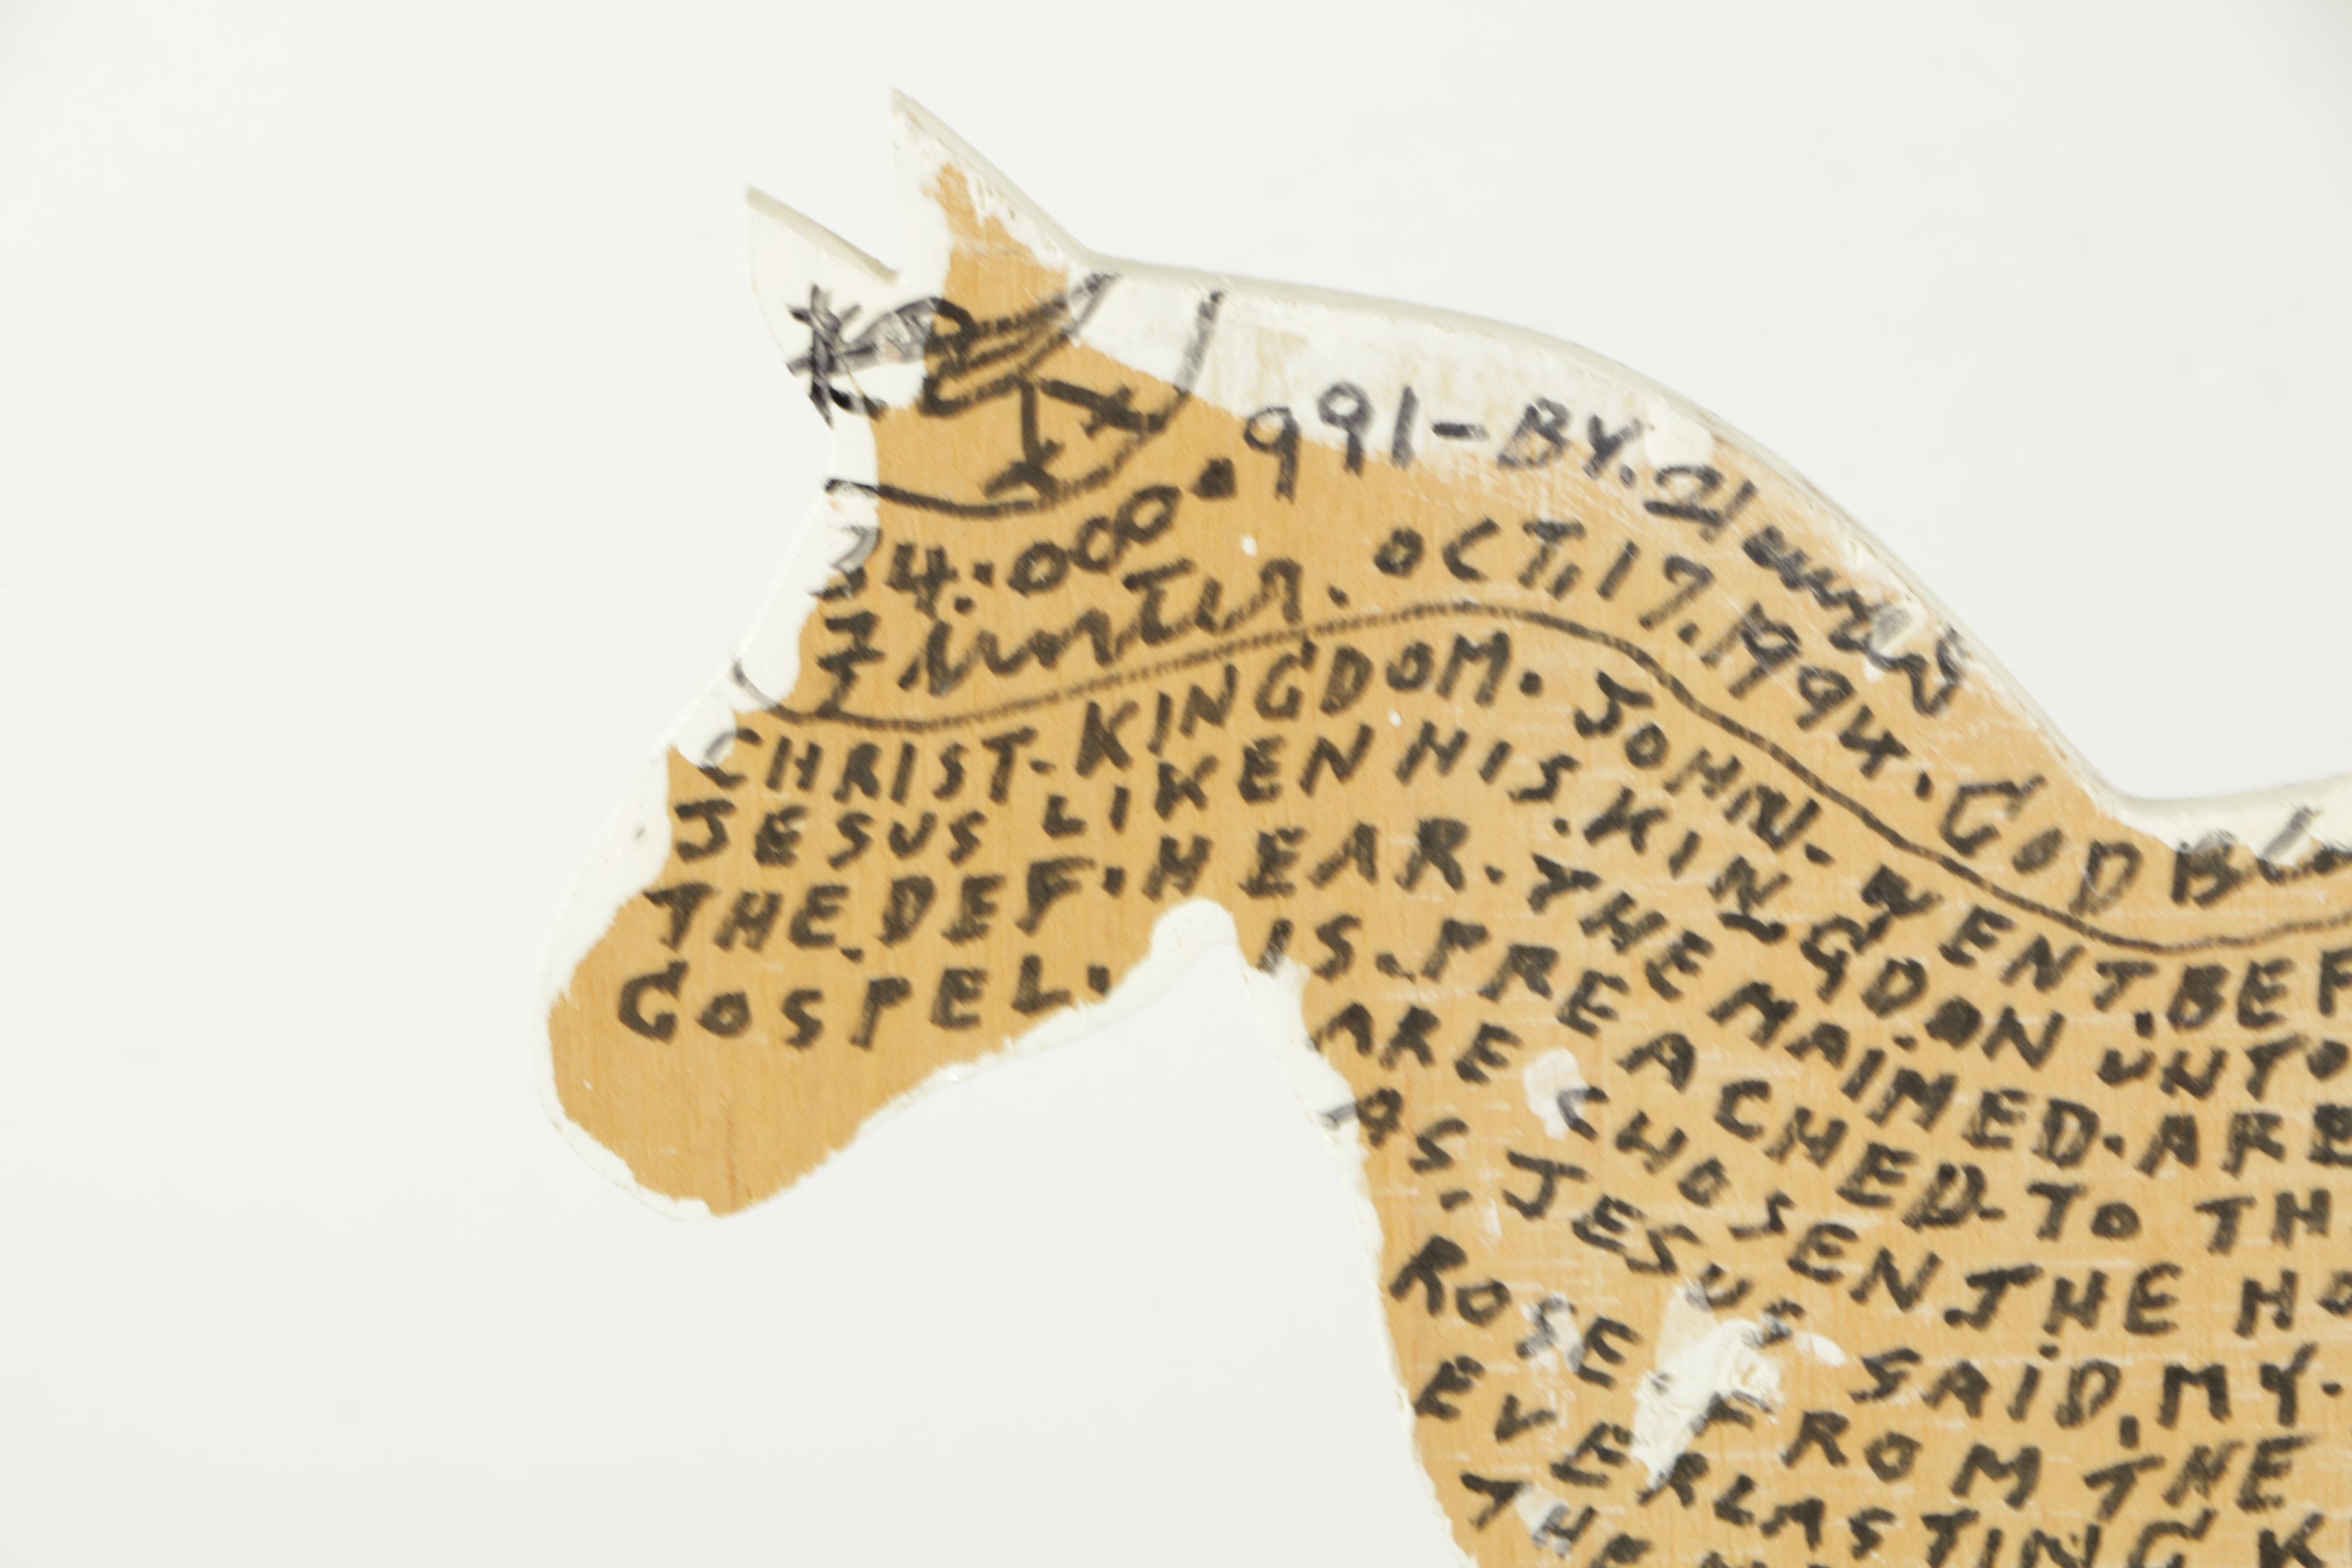 34:000.991-BY.21
OCT,17.1994. GOD
CHRIST-KINGDOM. JOHN-WENT.BEF
JESUS LIKEN HIS.KINGDON UNTO
THE.DEF.HEAR.THE MAIMED.ARE
GOSPEL. IS.PREACHED-TO TH
ARE CHOSEN THE HO
AS-JESUS SAID,MY-
ROSE FROM THE
EVERLASTING K
THE